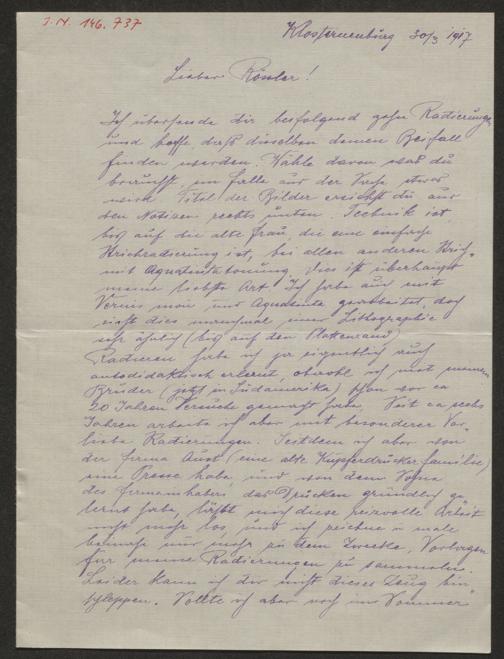 J.N. 146.737
Klosterneuburg 30/3 1917
Lieber Rössler!
Ich übersende dir beifolgend zehn Radierungen
und hoffe daß dieselben deinen Beifall
finden werden. Wähle davon was du
brauchst im falle aus der Sache etwas
wird. Titel der Bilder ersiehst du aus
den Notizen rechts unten. Technik ist,
bis auf die alte Frau, die eine einfache
Strichradierung ist, bei allen anderen Strich
mit Aquatintatonung. Dies ist überhaupt
meine liebste Art. Ich habe auch mit
Vernis mou und Aquatinta gearbeitet, doch
sieht dies manchmal einer Lithographie
sehr ähnlich (bis auf den Plattenrand)
Radieren habe ich ja eigentlich auch
autodidaktisch erlernt obwohl ich mit meinem
Bruder (jetzt in Südamerika) schon vor ca
20 Jahren Versuche gemacht habe. Seit ca sechs
Jahren arbeite ich aber mit besonderer Vor-
liebe Radierungen. Seitdem ich aber von
der firma Aust (eine alte Kupferdrucker familie)
eine Presse habe und von dem Sohne
des firmeninhabers das Drucken gründlich ge-
lernt habe, läßt mich diese reizvolle Arbeit
nicht mehr los, und ich zeichne u male
beinahe nur mehr zu dem Zwecke, Vorlagen
für meine Radierungen zu sammeln.
Leider kann ich dir nicht dieses Zeug hin
schleppen. Solltest ich aber noch im Sommer